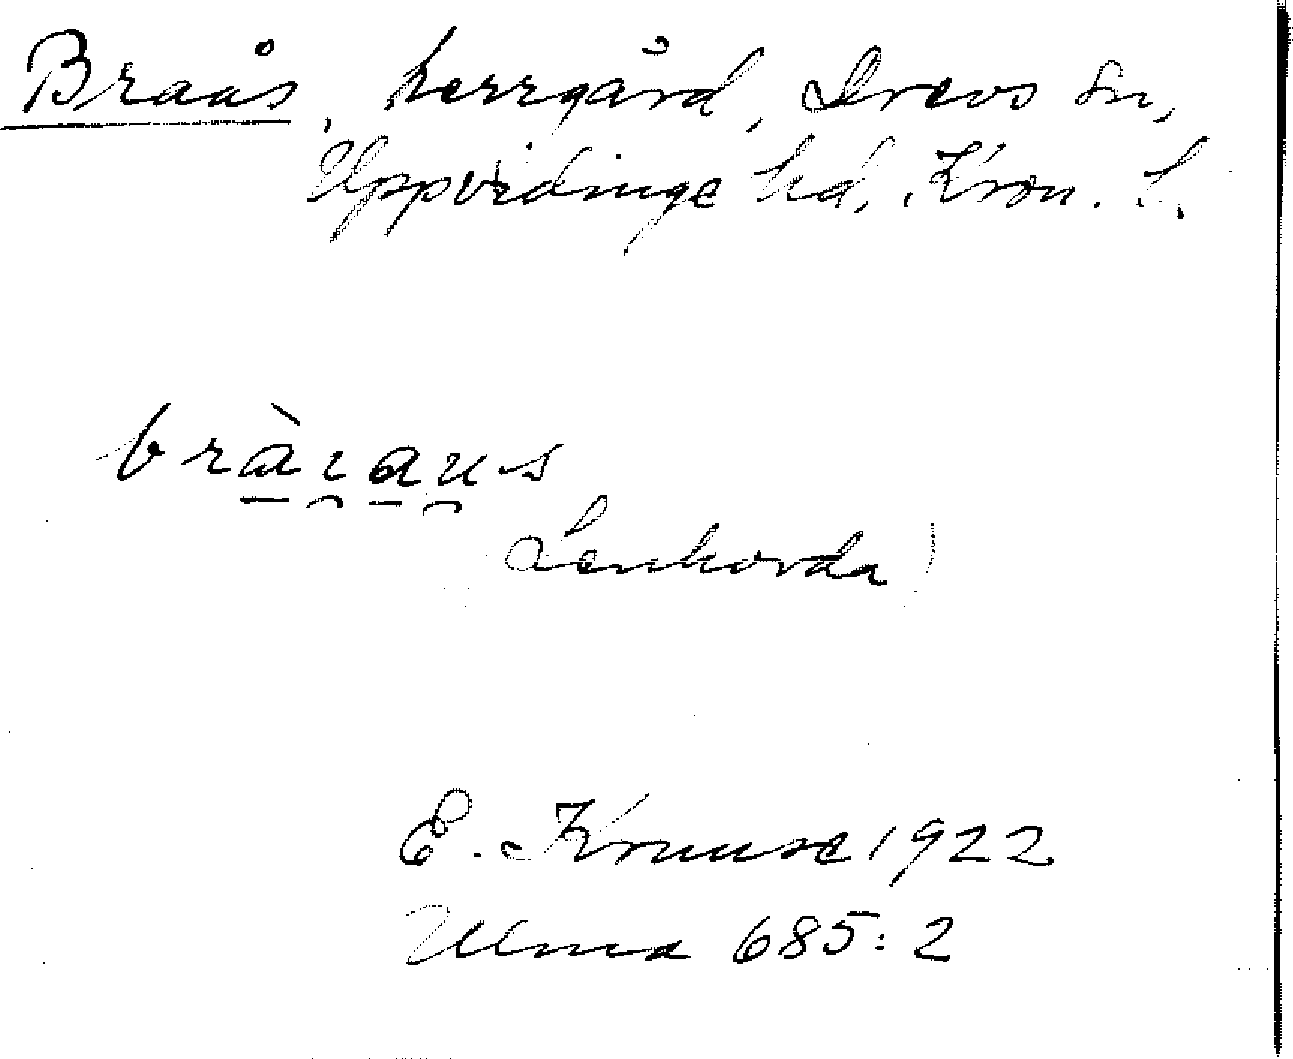 Braås, herrgård, Drevs sn,
Uppvidinge hd, Kron. l.
bràɩaus
Lenhovda)
E. Kruuse 1922
Ulma 685:2